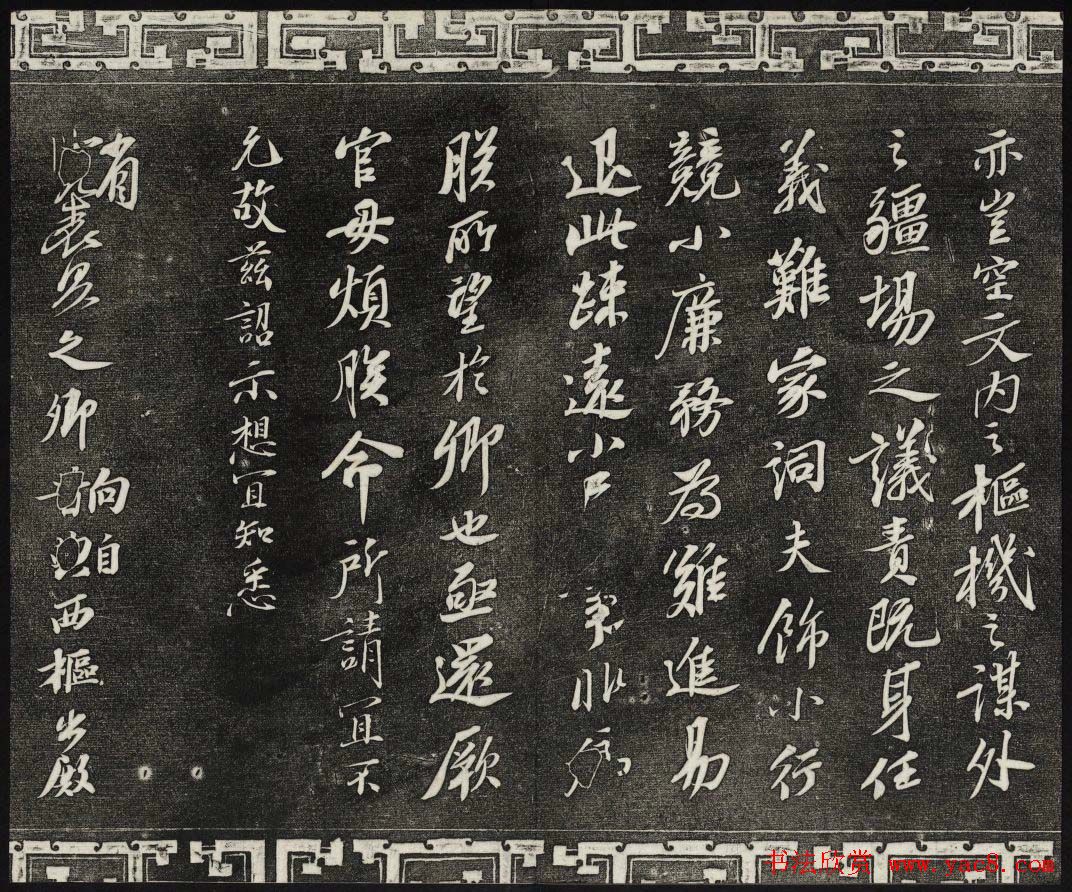 亦豈空文内之樞機之謀外
之疆場之議責既身任
義難家詞夫飾小行
競小廉務為難進易
退此踈遠小
事非
朕所望於卿也亟還厥
官毋煩朕命所請宜不
允故茲詔示想宜知悉
省
之卿
向自西樞出殿
书法欣赏 www.yac8.com